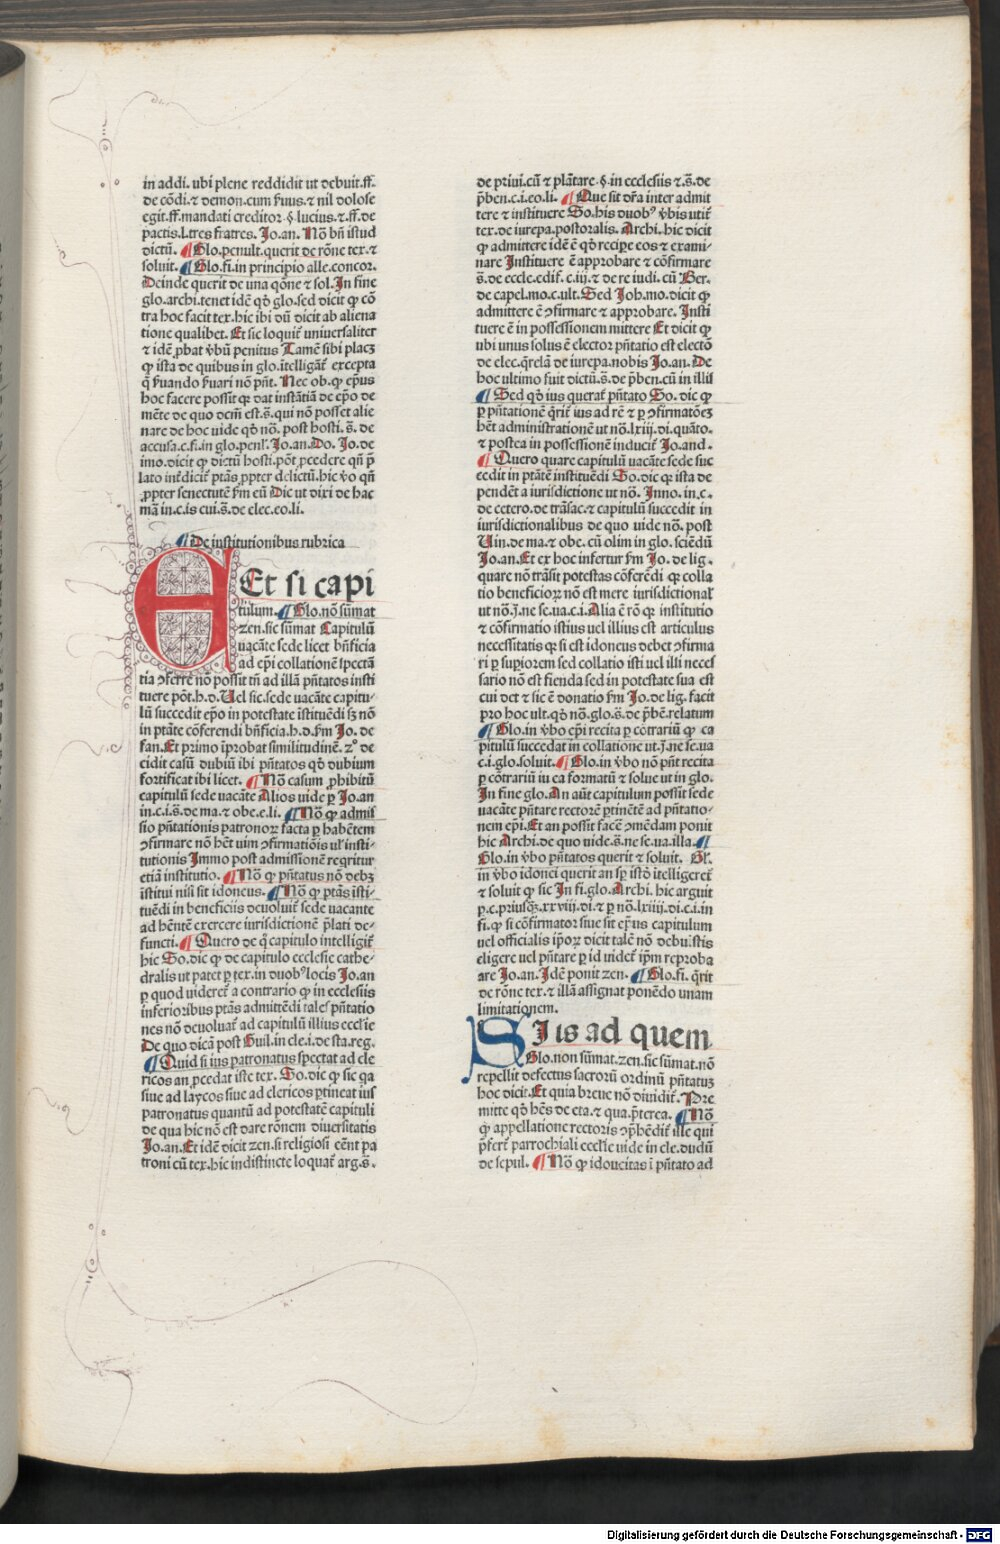 in addi. ubi plene reddidit ut debuit. ff.
de cōdi. ⁊ demon. cum ẜuus. ⁊ nil dolose
egit. ff. mandati creditor. §. lucius. ⁊. ff. de
pactis. l. tres fratres. Jo. an. No bn̄ istud
dictū. ¶ Glo. penult. querit de rōne tex. ⁊
soluit. ¶ Glo. fi. in principio alle. concor.
Deinde querit de una qōne ⁊ sol. In fine
glo. archi. tenet idē qd glo. sed dicit ꝙ cō
tra hoc facit tex. hic ibi dū dicit ab aliena
tione qualibet. Et sic loquit̄ uniuersaliter
⁊ idē ꝓbat v̄bū penitus Tamē sibi placꝫ
ꝙ ista de quibus in glo. ītelligāt̄ excepta
q̄ ẜuando ẜuari nō pn̄t. Nec ob. ꝙ ep̄us
hoc facere possit ꝙ dat instātiā de ep̄o de
mēte de quo dem̄ est. s̄. qui nō posset alie
nare de hoc uide qd nō. post hosti. s̄. de
accusa. c. fi. in glo. penl̄. Jo. an. Do. Jo. de
imo. dicit ꝙ dictū hosti. pōt ꝓcedere qn̄ p̄
lato int̄dicit̄ ptās ꝓpter delictū. hic v̄o qn̄
ꝓpter senectutē ẜm eū Dic ut dixi de hac
mā in. c. is cui. s̄. de elec. eo. li.
¶ De institutionibus rubrica
Et si capi
tulum. ¶ Glo. nō sūmat
zen. sic sūmat Capitulū
uacāte sede licet bn̄ficia
ad ep̄i collationē spectā
tia ↄferre nō possit tn̄ ad illā pn̄tatos insti
tuere pōt. h. d. Uel sic. sede uacāte capitu-
lū succedit ep̄o in potestate īstituēdi sꝫ nō
in ptāte cōferendi bn̄ficia. h. d. ẜm Jo. de
fan. Et primo īprobat similitudinē. 2º de
cidit casū dubiū ibi pn̄tatos qd dubium
fortificat ibi licet. ¶ Nō casum ꝓhibitū
capitulū sede uacāte Alios uide ꝑ Jo. an
in. c. i. s̄. de ma. ⁊ obe. e. li. ¶ Nō ꝙ admis
sio pn̄tationis patronoꝝ facta ꝑ habētem
ↄfirmare nō hēt uim ↄfirmatiōis ul̄ insti-
tutionis Immo post admissionē reqritur
etiā institutio. ¶ Nō ꝙ pn̄tatus nō debꝫ
īstitui nisi sit idoneus. ¶ Nō ꝙ ptās īsti-
tuēdi in beneficiis deuoluit̄ sede uacante
ad hēntē exercere iurisdictionē p̄lati de-
functi. ¶ Quero de q̄ capitulo intelligit̄
hic So. dic ꝙ de capitulo ecclesie cathe-
dralis ut patet ꝑ tex. in duobꝰ locis Jo. an
ꝑ quod uideret̄ a contrario ꝙ in ecclesiis
inferioribus ptās admittēdi tales pn̄tatio
nes nō deuoluat̄ ad capitulū illius eccl̄ie
De quo dicā post Guil. in cle. i. de sta. reg.
¶ Quid si ius patronatus spectat ad cle
ricos an ꝓcedat iste tex. So. dic ꝙ sic qa
siue ad laycos siue ad clericos ꝑtineat ius
patronatus quantū ad potestatē capituli
de qua hic nō est dare rōnem diuersitatis
Jo. an. Et idē dicit zen. si religiosi eēnt pa
troni cū tex. hic indistincte loquat̄ arg. s̄.
de priui. cū ⁊ plātare. §. in ecclesiis ⁊. s̄. de
p̄ben. c. i. eo. li. ¶ Que sit dr̄a inter admit
tere ⁊ instituere So. his duobꝰ v̄bis utit̄
tex. de iurepa. postoralis. Archi. hic dicit
ꝙ admittere idē ē qd recipe eos ⁊ exami
nare Instituere ē approbare ⁊ cōfirmare
s̄. de eccle. edif. c. iij. ⁊ de re iudi. cū Ber-
de capel. mo. c. ult. Sed Joh. mo. dicit ꝙ
admittere ē ↄfirmare ⁊ approbare. Insti
tuere ē in possessionem mittere Et dicit ꝙ
ubi unus solus ē elector pn̄tatio est electō
de elec. q̄relā de iurepa. nobis Jo. an. De
hoc ultimo fuit dictū. s̄. de p̄ben. cū in illis
¶ Sed qd ius querat̄ pn̄tato So. dic ꝙ
ꝑ pn̄tationē q̄rit̄ ius ad rē ⁊ ꝑ ↄfirmatōeꝫ
hēt administrationē ut nō. lxiij. di. quāto.
⁊ postea in possessionē inducit̄ Jo. and.
¶ Quero quare capitulū uacāte sede suc
cedit in ptātē instituēdi So. dic ꝙ ista de
pendēt a iurisdictione ut nō. Inno. in. c.
de cetero. de trāsac. ⁊ capitulū succedit in
iurisdictionalibus de quo uide nō. post
Uin. de ma. ⁊ obe. cū olim in glo. sciēdū
Jo. an. Et ex hoc infertur ẜm Jo. de lig.
quare nō trāsit potestas cōferēdi ꝙ colla
tio beneficioꝝ nō est mere iurisdictional̄
ut nō. j. ne se. ua. c. i. Alia ē rō ꝙ institutio
⁊ cōfirmatio istius uel illius est articulus
necessitatis ꝙ si est idoneus debet ↄfirma
ri ꝑ supiorem sed collatio isti uel illi neces
sario nō est fienda sed in potestate sua est
cui det ⁊ sic ē donatio ẜm Jo. de lig. facit
pro hoc ult. qd nō. glo. s̄. de p̄bē. relatum
¶ Glo. in v̄bo ep̄i recita ꝑ cōtrariū ꝙ ca
pitulū succedat in collatione ut. j. ne se. ua
c. i. glo. soluit. ¶ Glo. in v̄bo nō pn̄t recita
ꝑ cōtrariū iu ca formatū ⁊ solue ut in glo.
In fine glo. An aūt capitulum possit sede
uacāte pn̄tare rectorē ꝑtinētē ad pn̄tatio-
nem ep̄i. Et an possit facē ↄmēdam ponit
hic Archi. de quo uide. s̄. ne se. ua. illa. ¶
Glo. in v̄bo pn̄tatos querit ⁊ soluit. Gl̄.
in v̄bo idonei querit an sꝑ istō ītelligeret̄
⁊ soluit ꝙ sic In fi. glo. Archi. hic arguit
ꝑ. c. priusqꝫ. xxviij. di. ⁊ ꝑ nō. lxiiij. di. c. i. in
fi. ꝙ si cōfirmator siue sit ep̄us capitulum
uel officialis ip̄oꝝ dicit talē nō debuistis
eligere uel pn̄tare ꝑ id uidet̄ ip̄m reproba
are Jo. an. Idē ponit zen. ¶ Glo. fi. q̄rit
de rōne tex. ⁊ illā assignat ponēdo unam
limitationem.
SJ is ad quem
Glo. non sūmat. zen. sic sūmat. nō
repellit defectus sacrorū ordinū pn̄tatuꝫ
hoc dicit. Et quia breue nō diuidit̄. Pre
mitte qd hēs de eta. ⁊ qua. p̄terea. ¶ Nō
ꝙ appellatione rectoris ↄp̄hēdit̄ ille qui
p̄fert̄ parrochiali eccl̄ie uide in cle. dudū
de sepul. ¶ Nō ꝙ idoueitas ī pn̄tato ad
Digitalisierung gefördert durch die Deutsche Forschungsgemeinschaft - DFG